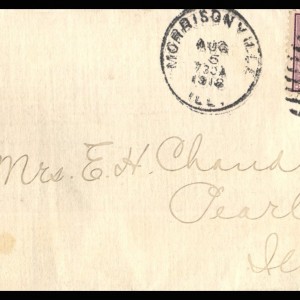 MORRISONVILLE
AUG
6
ILL.
Mrs. E. H. Chand
Pearl
Ill